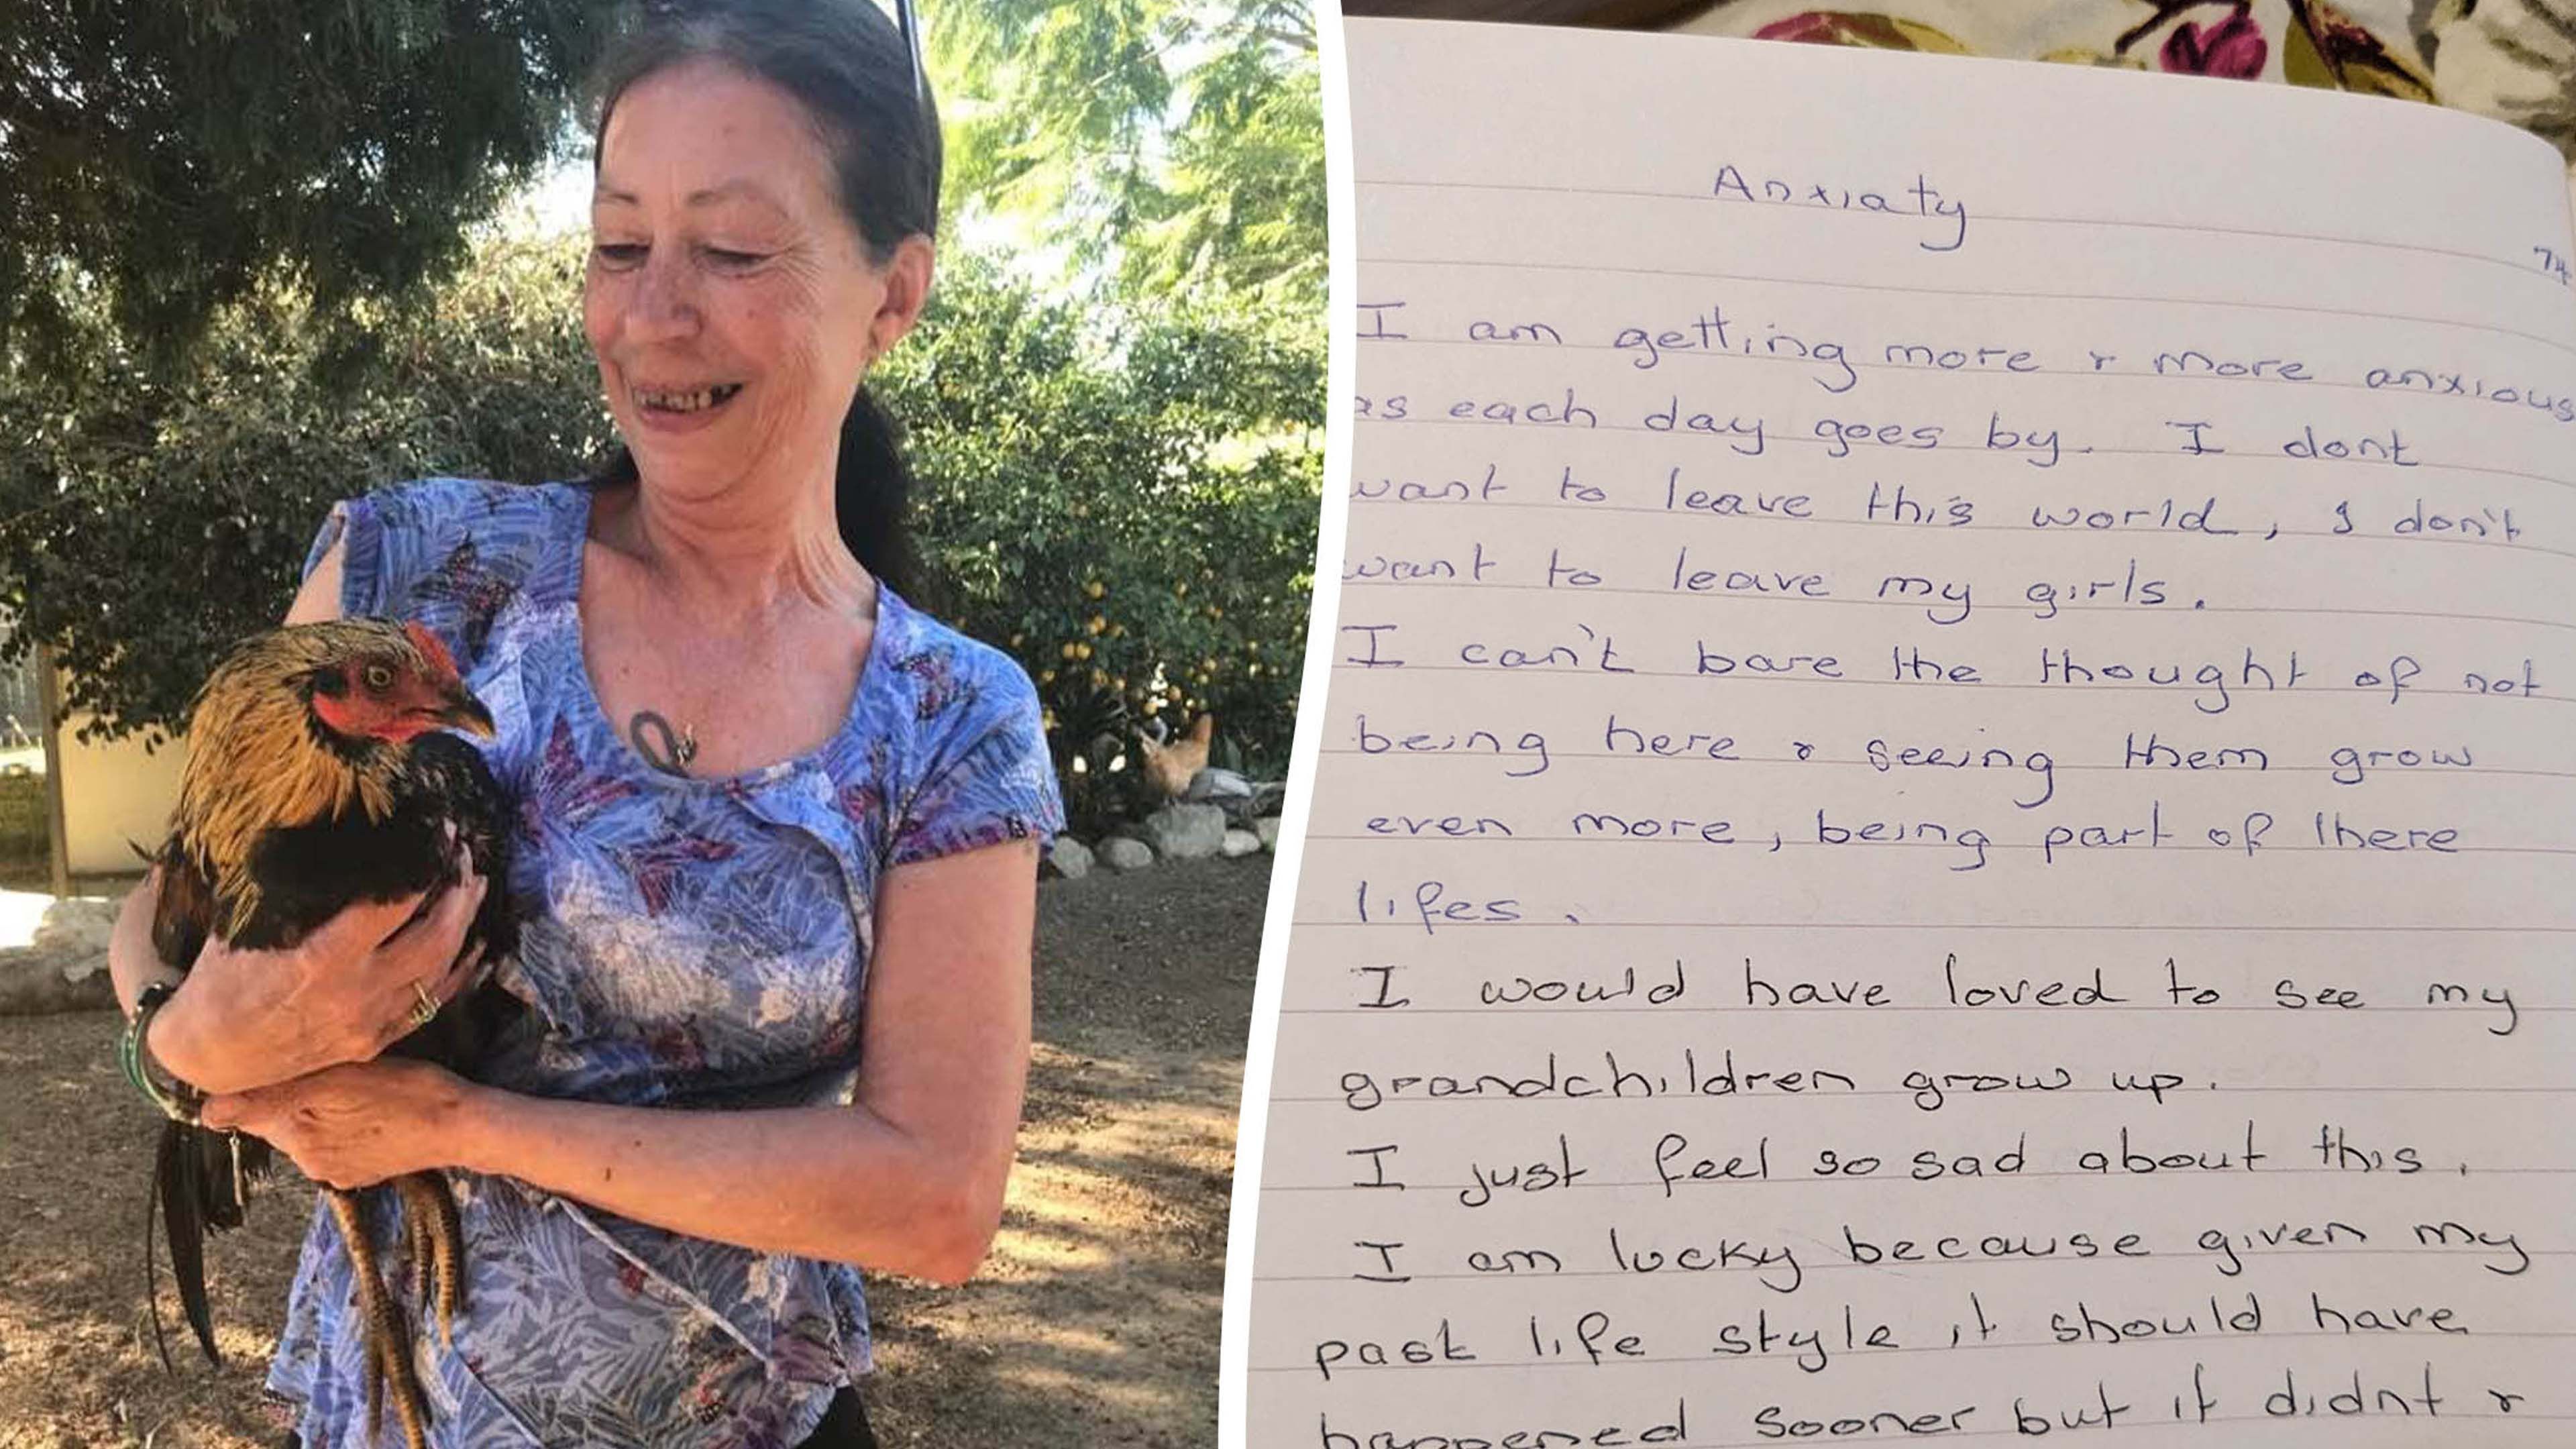 Anxiaty
74
I am getting more & more anxious
as each day goes by. I dont
want to leave this world, I don't
want to leave my girls.
I can't bare the thought of not
being here & seeing them grow
even more, being part of there
lifes.
I would have loved to see my
grandchildren grow up.
I just feel so sad about this.
I am lucky because given my
past life style it should have
happened sooner but it didnt &